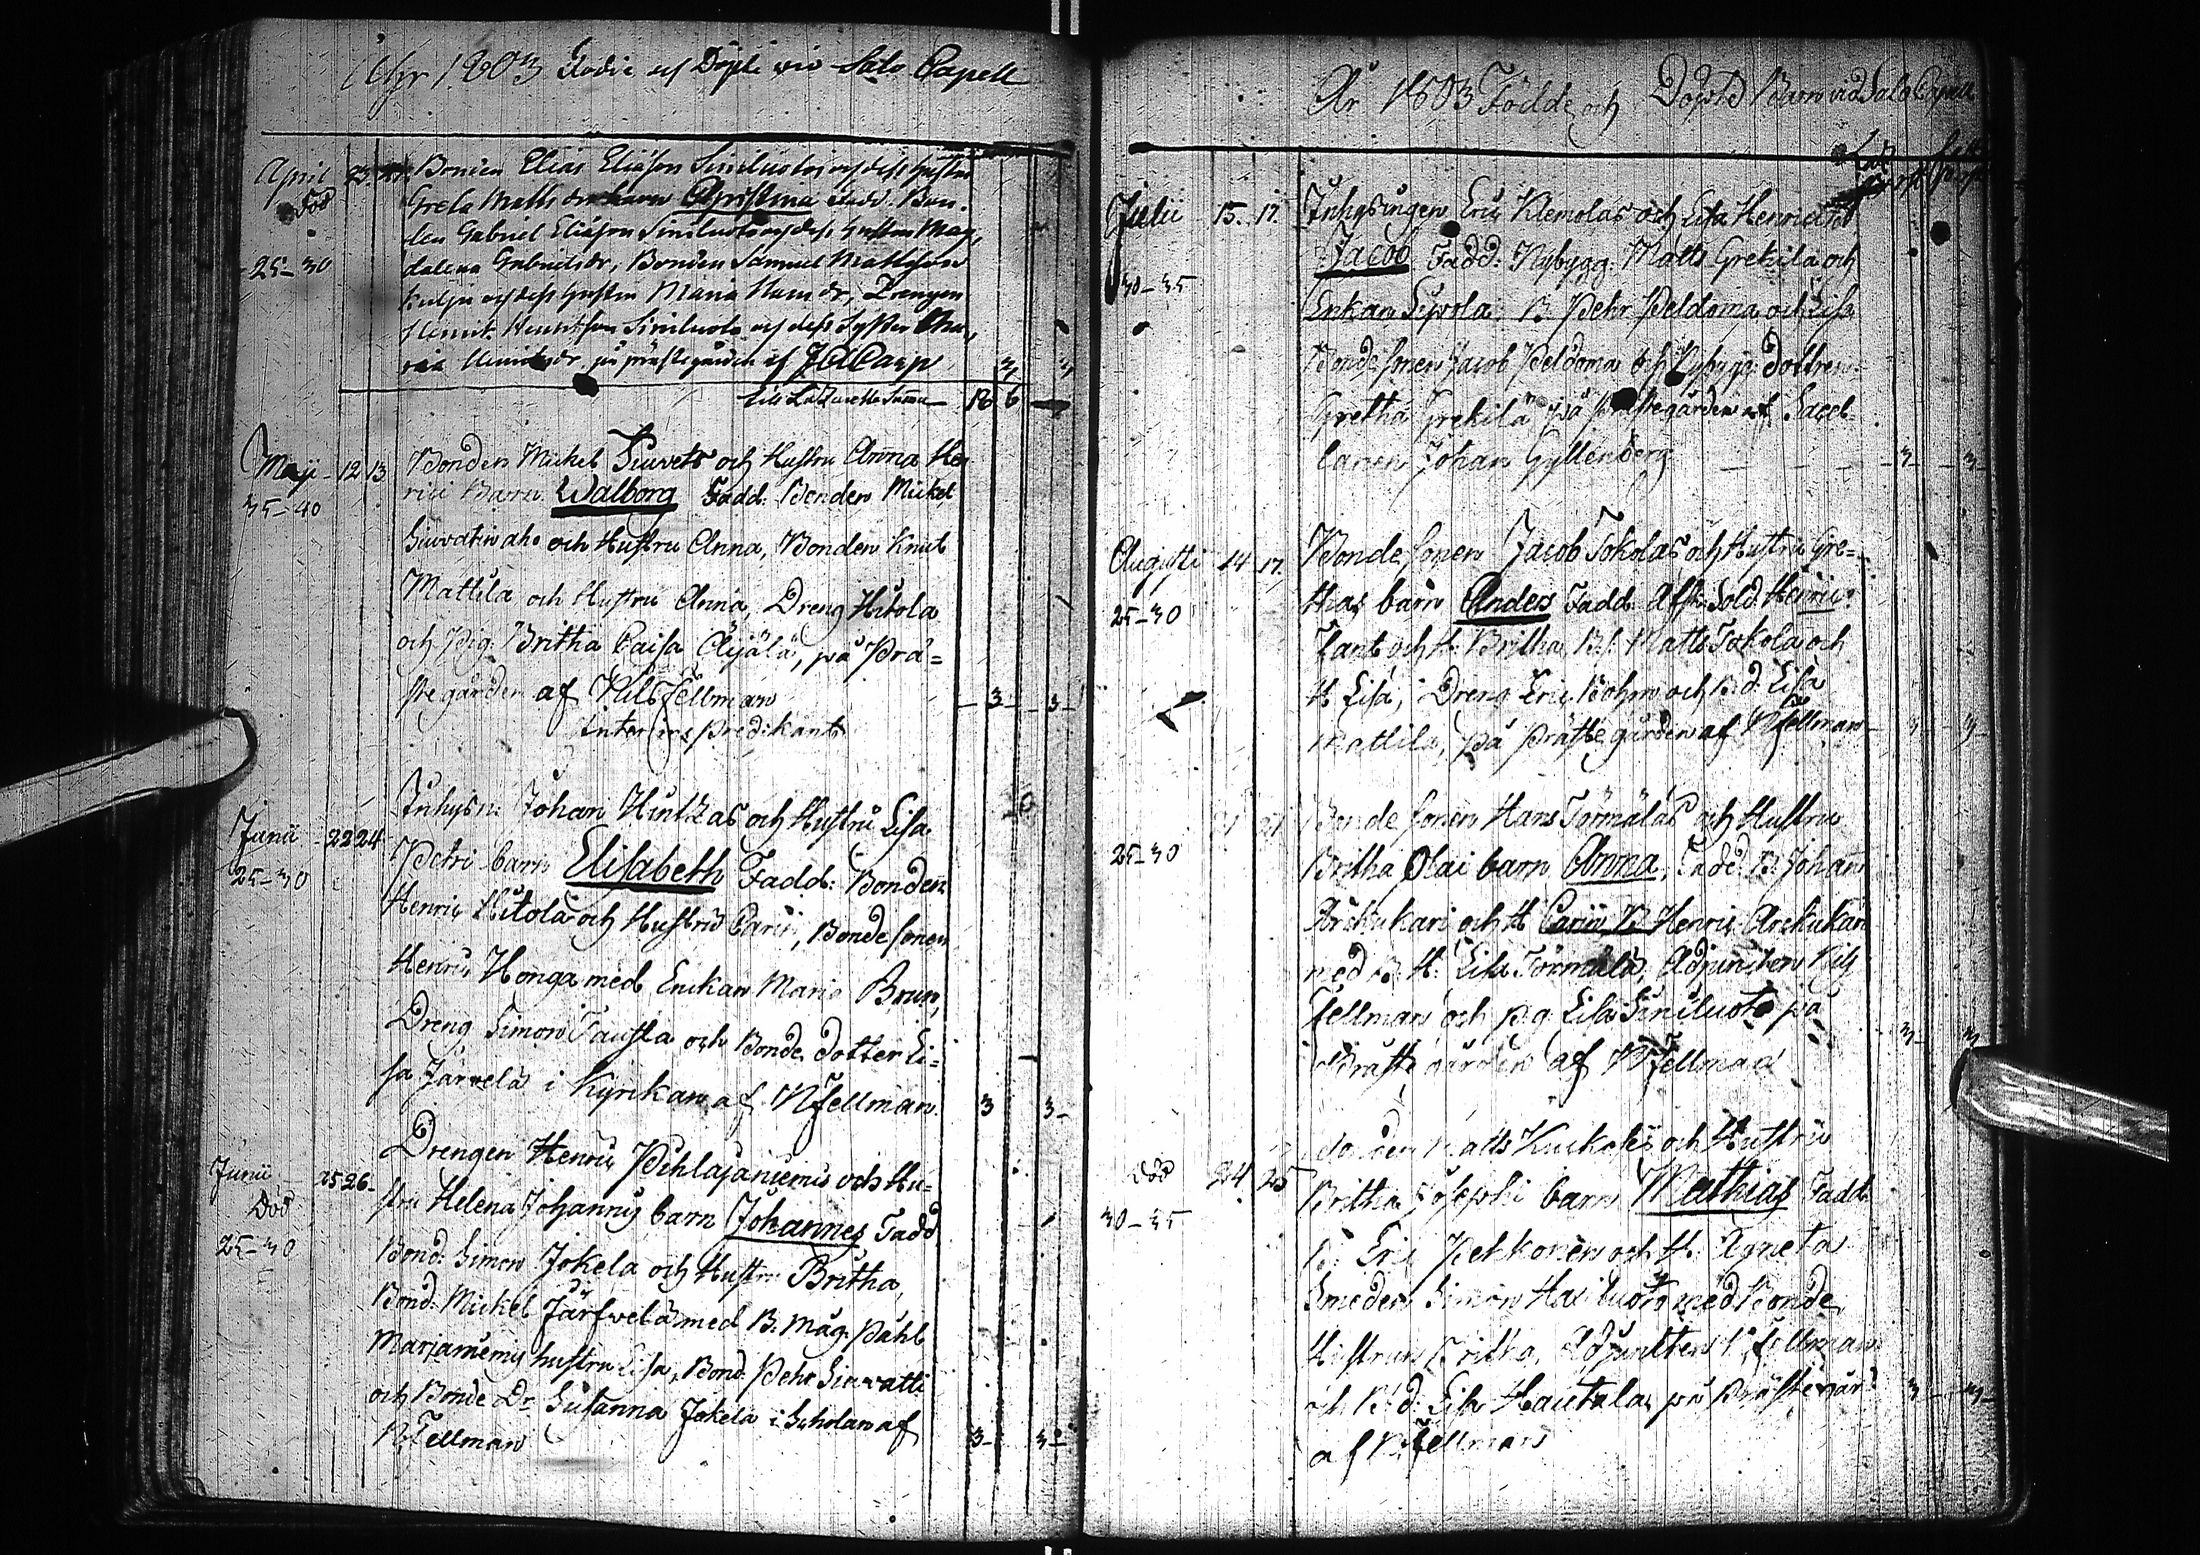 Åhr 1803 Födde och Döpte vid Salo Capell
April 23. Bonden Elias Eliasson Siniluoto och dess hustru
Död Greta Matts dr barn Christina Fadd. Bon-
den Gabriel Eliasson Siniluoto och dess hustru Mag-
25-30 dalena Gabrielsdr, Bonden Samuel Mattsson
och dess hustru Maria dr, Drengen
Henric Henricsson Siniluoto och dess Syster Ma-
ria Henricsdr, på prästegården af 3
till Lazarette 18 6
Maji 12 13 Bonden Mickel Siuvets och Hustru Anna Hen
35-40 rici Barn Walborg Fadd. Bonden Mickel
och Hustru Anna, Bonden Knut
Mattila och Hustru Anna, Dreng Hitola
och Pig. Britha Caisa Äijälä, på Prä-
stegården af Nils Fellman 3 3
Predikant
Junii 22 24 Inhysn: Johan Hintzas och Hustru Lisa
25-30 Petri barn Elisabeth Fadd: Bonden
Henric Hitola och Hustru Carin, Bondesonen
Henric Honga med Enckan Maria Brun,
Dreng Simon Tausta och Bonde dotter Li-
sa Järvelä i Kyrckan af N Fellman. 3 3
Junii 25 26 Drengen Henric Pihlajaniemis och Hu-
Död stru Helena Johannis barn Johannes Fadd
25-30 Bond: Simon Jokela och Hustru Britha,
Bond: Mickel Järfvelä med B. Måg. Påhl
Marjaniemis hustru Lisa, Bond. Pehr Siuvatti
och Bonde Dr Susanna Jokela i Scholan af
N Fellman 3 3
År 1803 Födde och Döpte Barn vid Salo Capell
Julii 15. 17. Inhysingen Eric Klemolas och Lisa Henrici
Jacob Fadd: Nybygg: Matts Grekilä och
30-35 Enkan Sipola B. Pehr Peldoma och Lisa
Bondesonen Jacob Peldoma och Nybygg: dottren
Gretha Grekilä på Prästegården af Sacel-
lanen Johan Gyllenberg 3 3
Augusti 14 17 Bondesonen Jacob Tokolas och Hustru Gre-
25-30 thas barn Anders Fadd. Afsk. Sold. Henric
och H. Britha, B.S. Matts Tokola och
H. Lisa, Dreng Eric Bohm och B.d. Lisa
Mattila, på Prästegården af N Fellman 3 3
21 21 Bonde sonen Hans Törmäläs och Hustru
25-30 Britha Olai barn Anna, Fadd. B. Johan
Arckukari och H Carin, B. Henric Arckukari
med B. H. Lisa Törmälä, Adjuncten Nils
Fellman och pig. Lisa Siniluoto på
Prästegården af N Fellman 3 3
Död 24 25 Bonden Matts och Hustru
30-35 Britha Josephi barn Mathias Fadd.
B. Eric Pekkonen och H. Agneta
Smeden Simon med Bonde
Hustrun Britha, Adjuncten N. Fellman
och B.d. Lisa Hautala, på Prästegår: 3
af N. Fellman